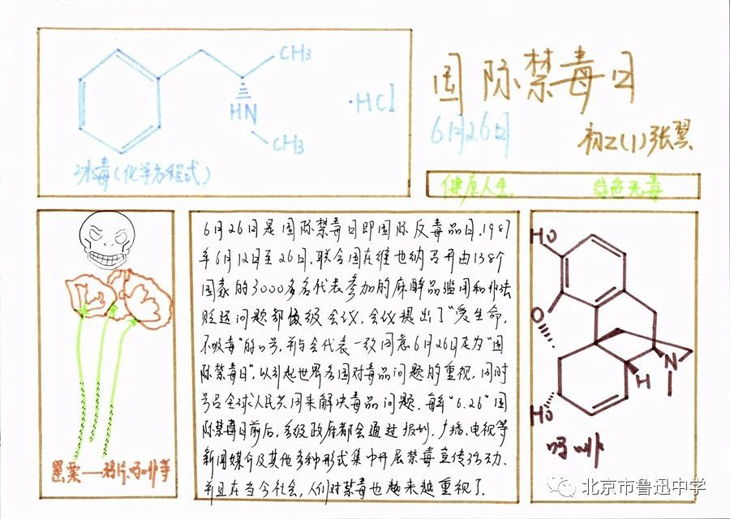 CH₃
HN
·HCl
CH₃
冰毒(化学方程式)
国际禁毒日
6月26日
初二(1)张翼
健康人生 绿色无毒
6月26日是国际禁毒日即国际反毒品日.1987
年6月12日至26日.联合国在维也纳召开由138个
国家的3000多名代表参加的麻醉品滥用和非法
贩运问题部长级会议,会议提出了"爱生命,
不吸毒"的口号,并与会代表一致同意6月26日定为"国
际禁毒日",以引起世界各国对毒品问题的重视,同时
号召全球人民共同来解决毒品问题.每年"6.26"国
际禁毒日前后,各级政府都会通过报刊、广播、电视等
新闻媒介及其他多种形式集中开展禁毒宣传活动、
并且在当今社会,人们对禁毒也越来越重视了.
罂粟——鸦片、吗啡等
HO
O
H
N
HO
吗啡
北京市鲁迅中学